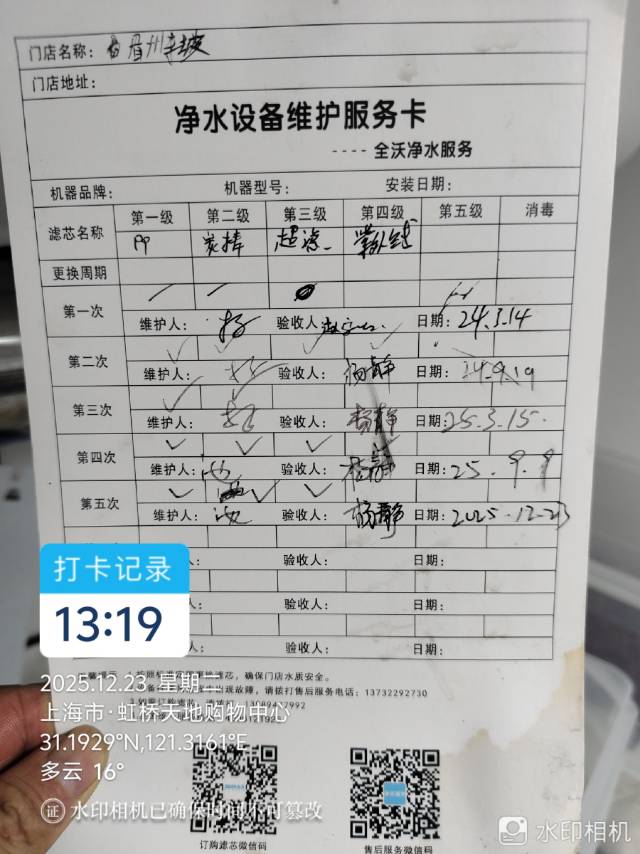 门店名称：眉州东坡
门店地址：
净水设备维护服务卡
---- 全沃净水服务
机器品牌： 机器型号： 安装日期：
滤芯名称 第一级 第二级 第三级 第四级 第五级 消毒
PP 炭棒 超滤
更换周期
第一次
维护人： 验收人： 日期：24.3.14
第二次
维护人： 验收人：杨静 日期：24.9.19
第三次
维护人： 验收人：杨静 日期：25.3.15
第四次
维护人： 验收人：杨静 日期：25.9.9
第五次
维护人： 验收人：杨静 日期：2025.12.23
验收人： 日期：
验收人： 日期：
验收人： 日期：
打卡记录
13:19
滤芯，确保门店水质安全。
2025.12.23 星期二
现故障，请拨打售后服务电话：13732292730
上海市·虹桥天地购物中心
31.1929°N,121.3161°E
多云 16°
证 水印相机已确保时间不可篡改
订购滤芯微信码 售后服务微信码
水印相机